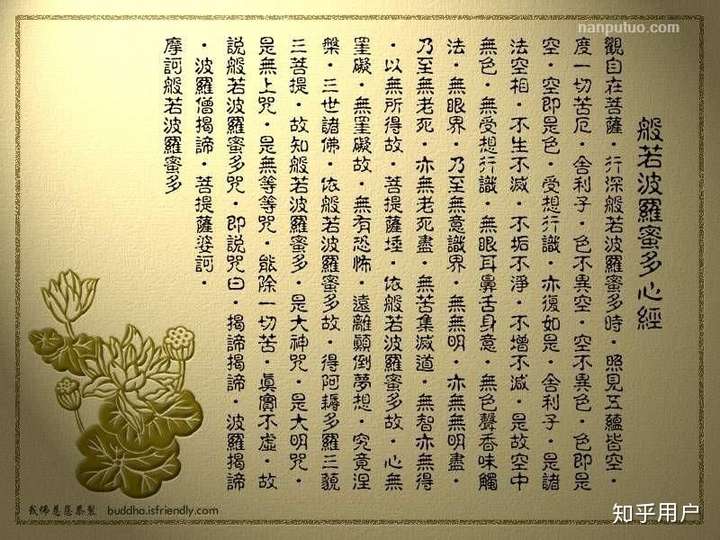 nanputuo.com
般若波羅蜜多心經
觀自在菩薩・行深般若波羅蜜多時・照見五蘊皆空・
度一切苦厄・舍利子・色不異空・空不異色・色即是
空・空即是色・受想行識・亦復如是・舍利子・是諸
法空相・不生不滅・不垢不淨・不增不減・是故空中
無色・無受想行識・無眼耳鼻舌身意・無色聲香味觸
法・無眼界・乃至無意識界・無無明・亦無無明盡・
乃至無老死・亦無老死盡・無苦集滅道・無智亦無得
・以無所得故・菩提薩埵・依般若波羅蜜多故・心無
罣礙・無罣礙故・無有恐怖・遠離顛倒夢想・究竟涅
槃・三世諸佛・依般若波羅蜜多故・得阿耨多羅三藐
三菩提・故知般若波羅蜜多・是大神咒・是大明咒・
是無上咒・是無等等咒・能除一切苦・真實不虛・故
說般若波羅蜜多咒・即說咒曰・揭諦揭諦・波羅揭諦
・波羅僧揭諦・菩提薩婆訶・
摩訶般若波羅蜜多
我佛慈悲恭製 buddha.isfriendly.com
知乎用户